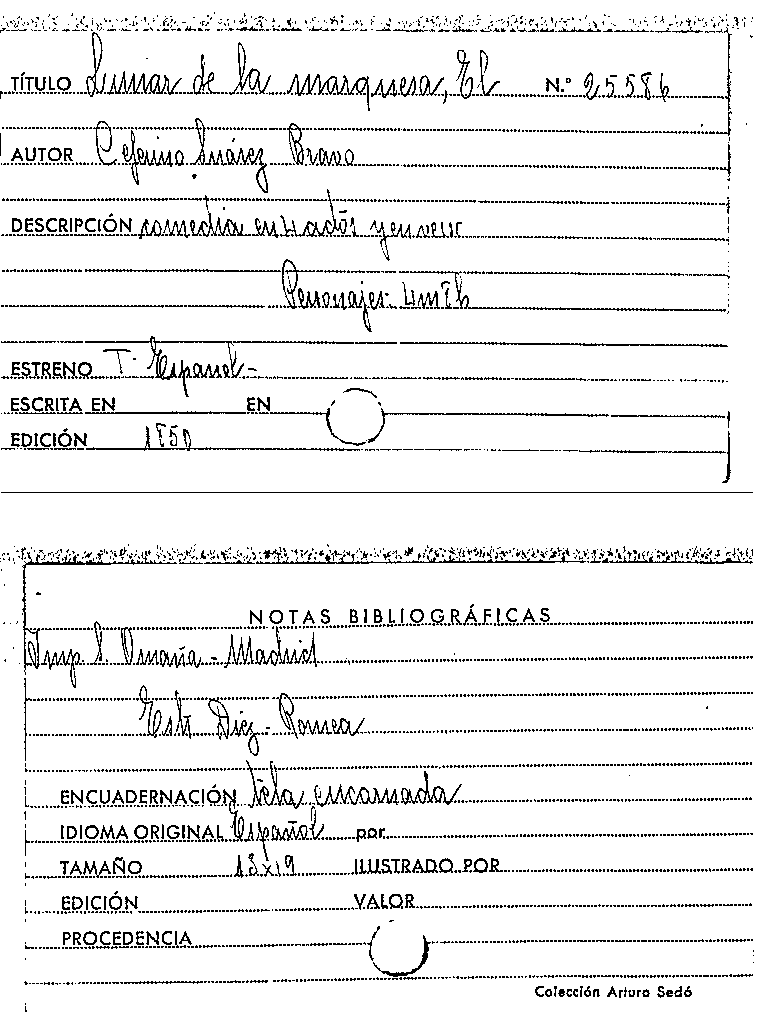 TÍTULO Lunar de la marquesa, El N.º 25586
AUTOR Ceferino Suárez Bravo
DESCRIPCIÓN comedia en 4 actos y en verso
Personajes: 4m 8h
ESTRENO T. Español-
ESCRITA EN EN
EDICIÓN 1850
NOTAS BIBLIOGRÁFICAS
Imp S. Omaña - Madrid
Diez - Romea
ENCUADERNACIÓN tela encarnada
IDIOMA ORIGINAL Español por
TAMAÑO 13x19 ILUSTRADO POR
EDICIÓN VALOR
PROCEDENCIA
Colección Arturo Sedó